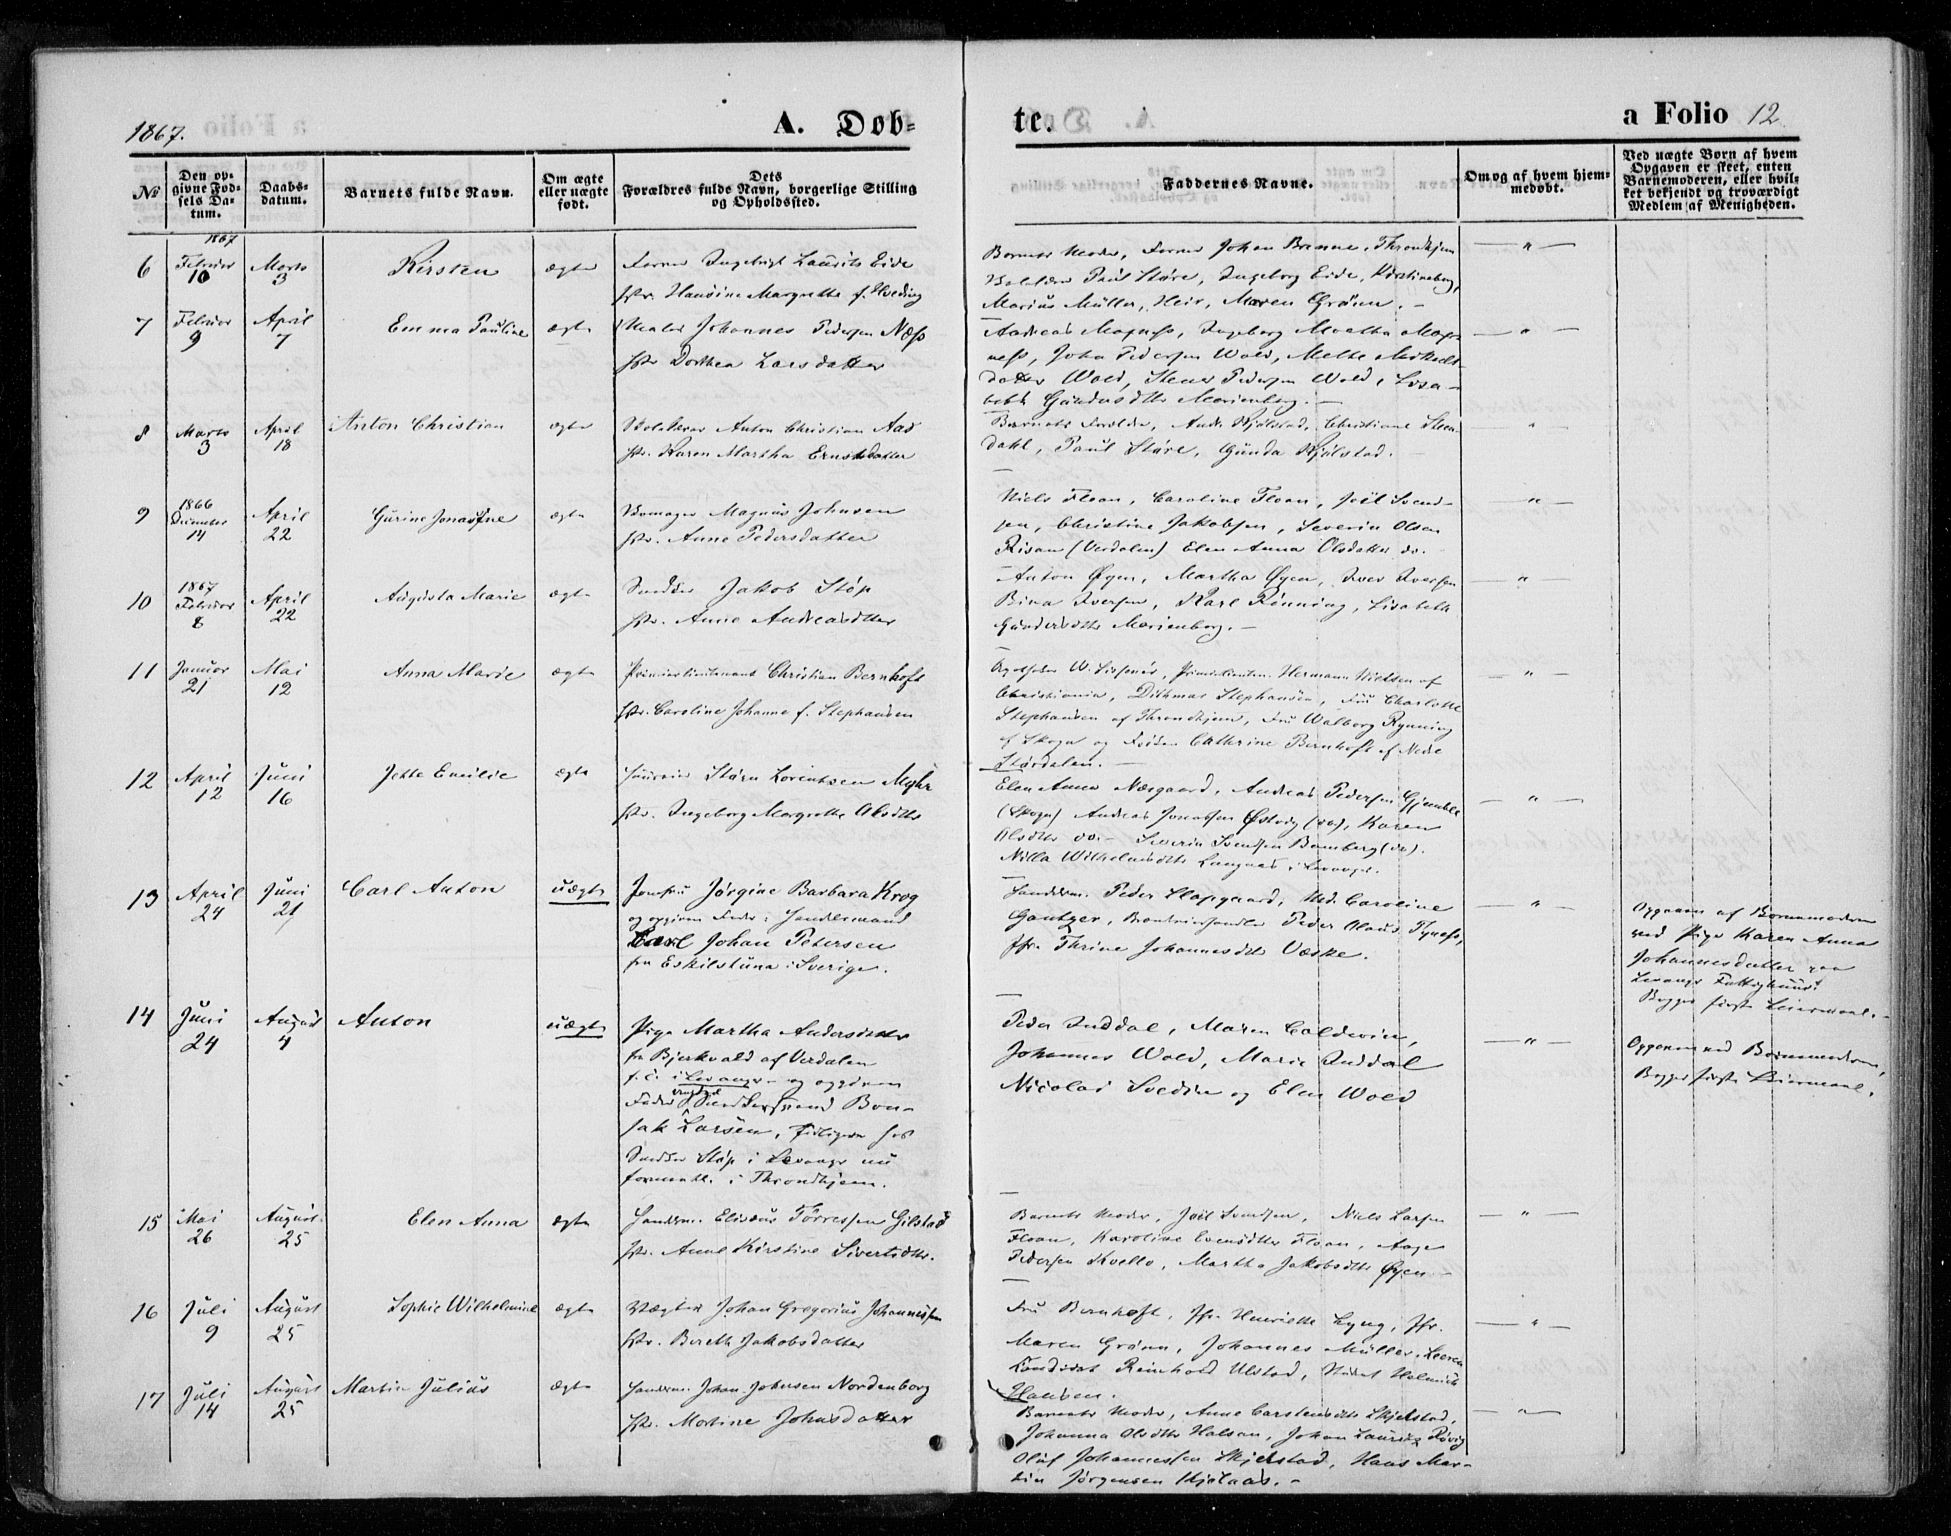 1867.
A. Døb-
te.
a Folio 12
No
Den op-
givne Fød-
sels Da-
tum.
Daabs-
datum.
Barnets fulde Navn.
Om ægte
eller uægte
født.
Dets
Forældres fulde Navn, borgerlige Stilling
og Opholdssted.
Faddernes Navne.
Om og af hvem hjem-
medøbt.
Ved uægte Børn af hvem
Opgaven er skeet, enten
Barnemoderen, eller hvil-
ket bekjendt og troværdigt
Medlem af Menigheden.
6
1867
Februar
10
Marts
3
Kirsten
ægte
Ingebrigt Laurits Eide
Hansine Margrethe f. Hveding
Barnets Moder, Johan Brenne, Throndhjem
Paul Støre, Ingeborg Eide, Kirstineborg,
Marius Müller, Maren Grönn. -
7
Februar
9
April
7
Emma Pauline
ægte
Maler Johannes Pedersen Næss
Dorthea Larsdatter
Andreas Ingeborg Martha
John Pedersen Wold, Mette
datter Wold, Pedersen Wold, Lisa-
beth Gundersdtr Marienborg. -
8
Marts
3
April
18
Anton Christian
ægte
Anton Christian Aas
Karen Martha Ernstsdatter
Barnets Forældre, Christiane Steen-
dahl, Paul Støre, Gunda
9
1866
December
14
April
22
Gurine Jonasine
ægte
Magnus Johnsen
Anne Pedersdatter
Niels Floan, Caroline Floan, Joël Svend-
sen, Christine Jakobsen, Severin Olsen
(Verdalen) Elen Anna Olsdatter do.
10
1867
Februar
8
April
22
Augusta Marie
ægte
Jakob Støp
Anne Andreasdtter
Anton Øyen, Martha Øyen, Iver Iversen
Bina Iversen, Karl Rönning, Lisabeth
Gundersdtr Marienborg. -
11
Januar
21
Mai
12
Anna Marie
ægte
Premierlieutenant Christian Bernhoft
Caroline Johanne f. Stephansen
Hermann Nielsen af
Christiania, Dithmar Stephansen, Fru Charlotte
Stephansen af Throndhjem, Fru Walborg Rynning
af Skogn og Cathrine Bernhoft af Nedre
Stördalen. -
12
April
12
Juni
16
Jette Emilie
ægte
Lorentsen Mohr
Ingeborg Margrethe Olsdtr
Elen Anna Næsgaard, Andreas Pedersen Gjemble
(Skogn) Andreas Jonassen Østvig (do), Karen
Olsdtr do. - Severin Svendsen Bamberg (do).
Nilla Wilhelmsdtr Langnæs i Levanger.
13
April
24
Juni
21
Carl Anton
uægte
Jomfru Jørgine Barbara Krog
og opgiven Fader: Handelsmand
Carl Johan Petersen
fra Eskilstuna i Sverige.
Handelsm. Peder Md. Caroline
Gantzer, Peder Olaus
Thrine Johannesdtr Væske.
Opgaven af Barnemoderen
ved Pige Karen Anna
Johannesdatter paa
Levanger Fattighuus.
Begges første Leiermaal. -
14
Juni
24
August
4
Anton
uægte
Pige Martha Andersdatter
fra Bjerkvald af Verdalen
f. t. i Levanger - og opgiven
Fader: ungkarl Bon-
sak Larsen, tidligere hos
Støp i Levanger nu
formentl. i Throndhjem.
Peder Inddal, Maren
Johannes Wold, Marie Inddal
Nicolai og Elen Wold
Opgaven ved Barnemoderen,
Begges første Leiermaal.
15
Mai
26
August
25
Elen Anna
ægte
Handelsm. Elisæus Tørresen Gilstad
Anne Kirstine Sivertsdtr.
Barnets Moder, Joël Svendsen, Niels Larsen
Floan, Karoline Evensdtter Floan, Aage
Pedersen Kvello, Martha Jakobsdtr Øyen -
16
Juli
9
August
25
Sophie Wilhelmine
ægte
Vægter Johan Gregorius Johannessen
Bereth Jakobsdatter
Fru Bernhoft, Jfr. Henriette Lyng, Jfr.
Maren Grönn, Johannes Müller,
Reinhold Ulstad,
Hansen.
17
Juli
14
August
25
Martin Julius
ægte
Handelsm. Johan Johnsen Nordenborg
Martine Johnsdatter
Barnets Moder, Anne Carstensdtr Skjelstad,
Johanna Olsdtr Halsan, Johan Lauritz
Oluf Johannessen Skjelstad, Hans Mar-
tin Jørgensen